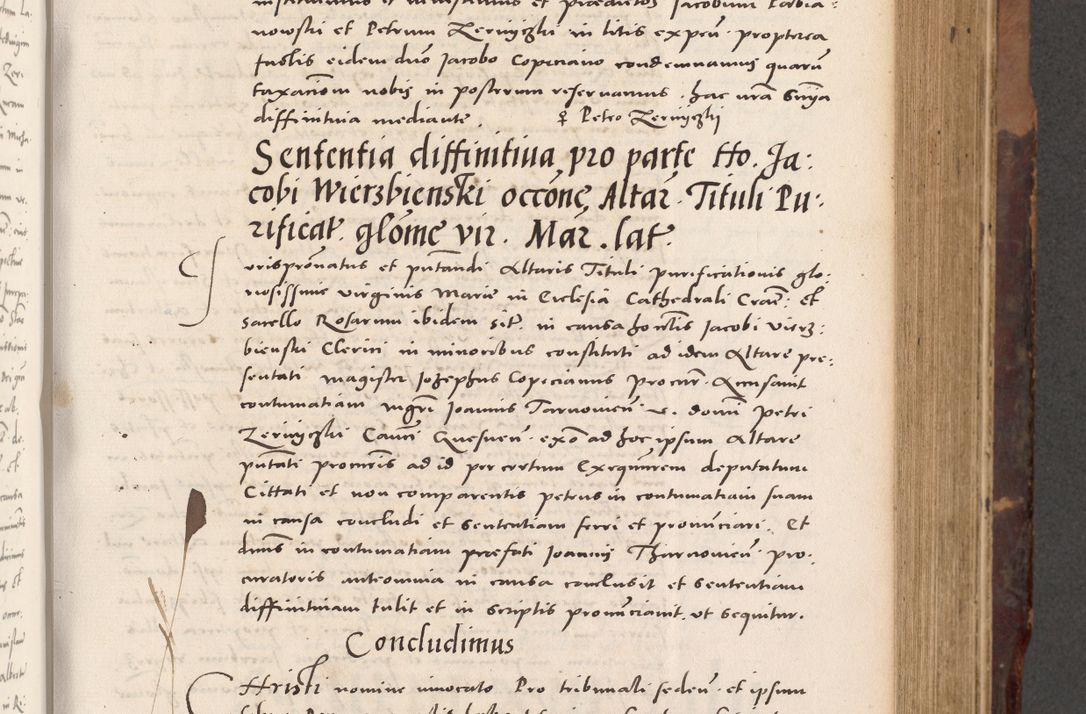 nowski et Petrum Zernyczki in litis expen̄ · propterea
eidem dno Jacobo Copiciano condemnamus quarū
taxacionem nobis in posterum reservamus . hac nrā snīa
diffinitiva mediante . Petro Zernyczki
Sententia diffinitiua pro parte tto. Ja:
cobi Wierzbienski occōne Altar̄ . Tituli Pu:
rificat̄ . glōme vir . Mar̄ . lat̄
Jurisprōnatus et putandi Altaris Tituli purificationis glo:
riosissime virginis Marie in Ecclesia Cathedrali Cracn̄ : et
Sacello Rosarum ibidem sit̄ . in causa honestis Jacobi Vierz:
bienski Clerici in minoribus constituti ad idem Altare pre:
sentati magister Jozephus Copicianus Procur̄ . Accusavit
contumatiam mgri Joannis Tarnovien̄ v. domi Petri
Zernyczki Canci Gnesnen̄ . ex ad hoc ipsum Altare
putati procuris ad id per certum Exequutorem deputatum
Cittati et non comparentis petens in contumatiam suam
in causa concludi et sententiam ferri et pronūciari . Et
dnus in contumatiam prefati Joannis Tharnovien̄ pro:
curatoris anteomnia in causa conclusit et sententiam
diffinitivam tulit et in scriptis pronūciavit . ut sequitur .
Concludimus
Christi nomine invocato Pro tribunali seden̄ . et ipsum